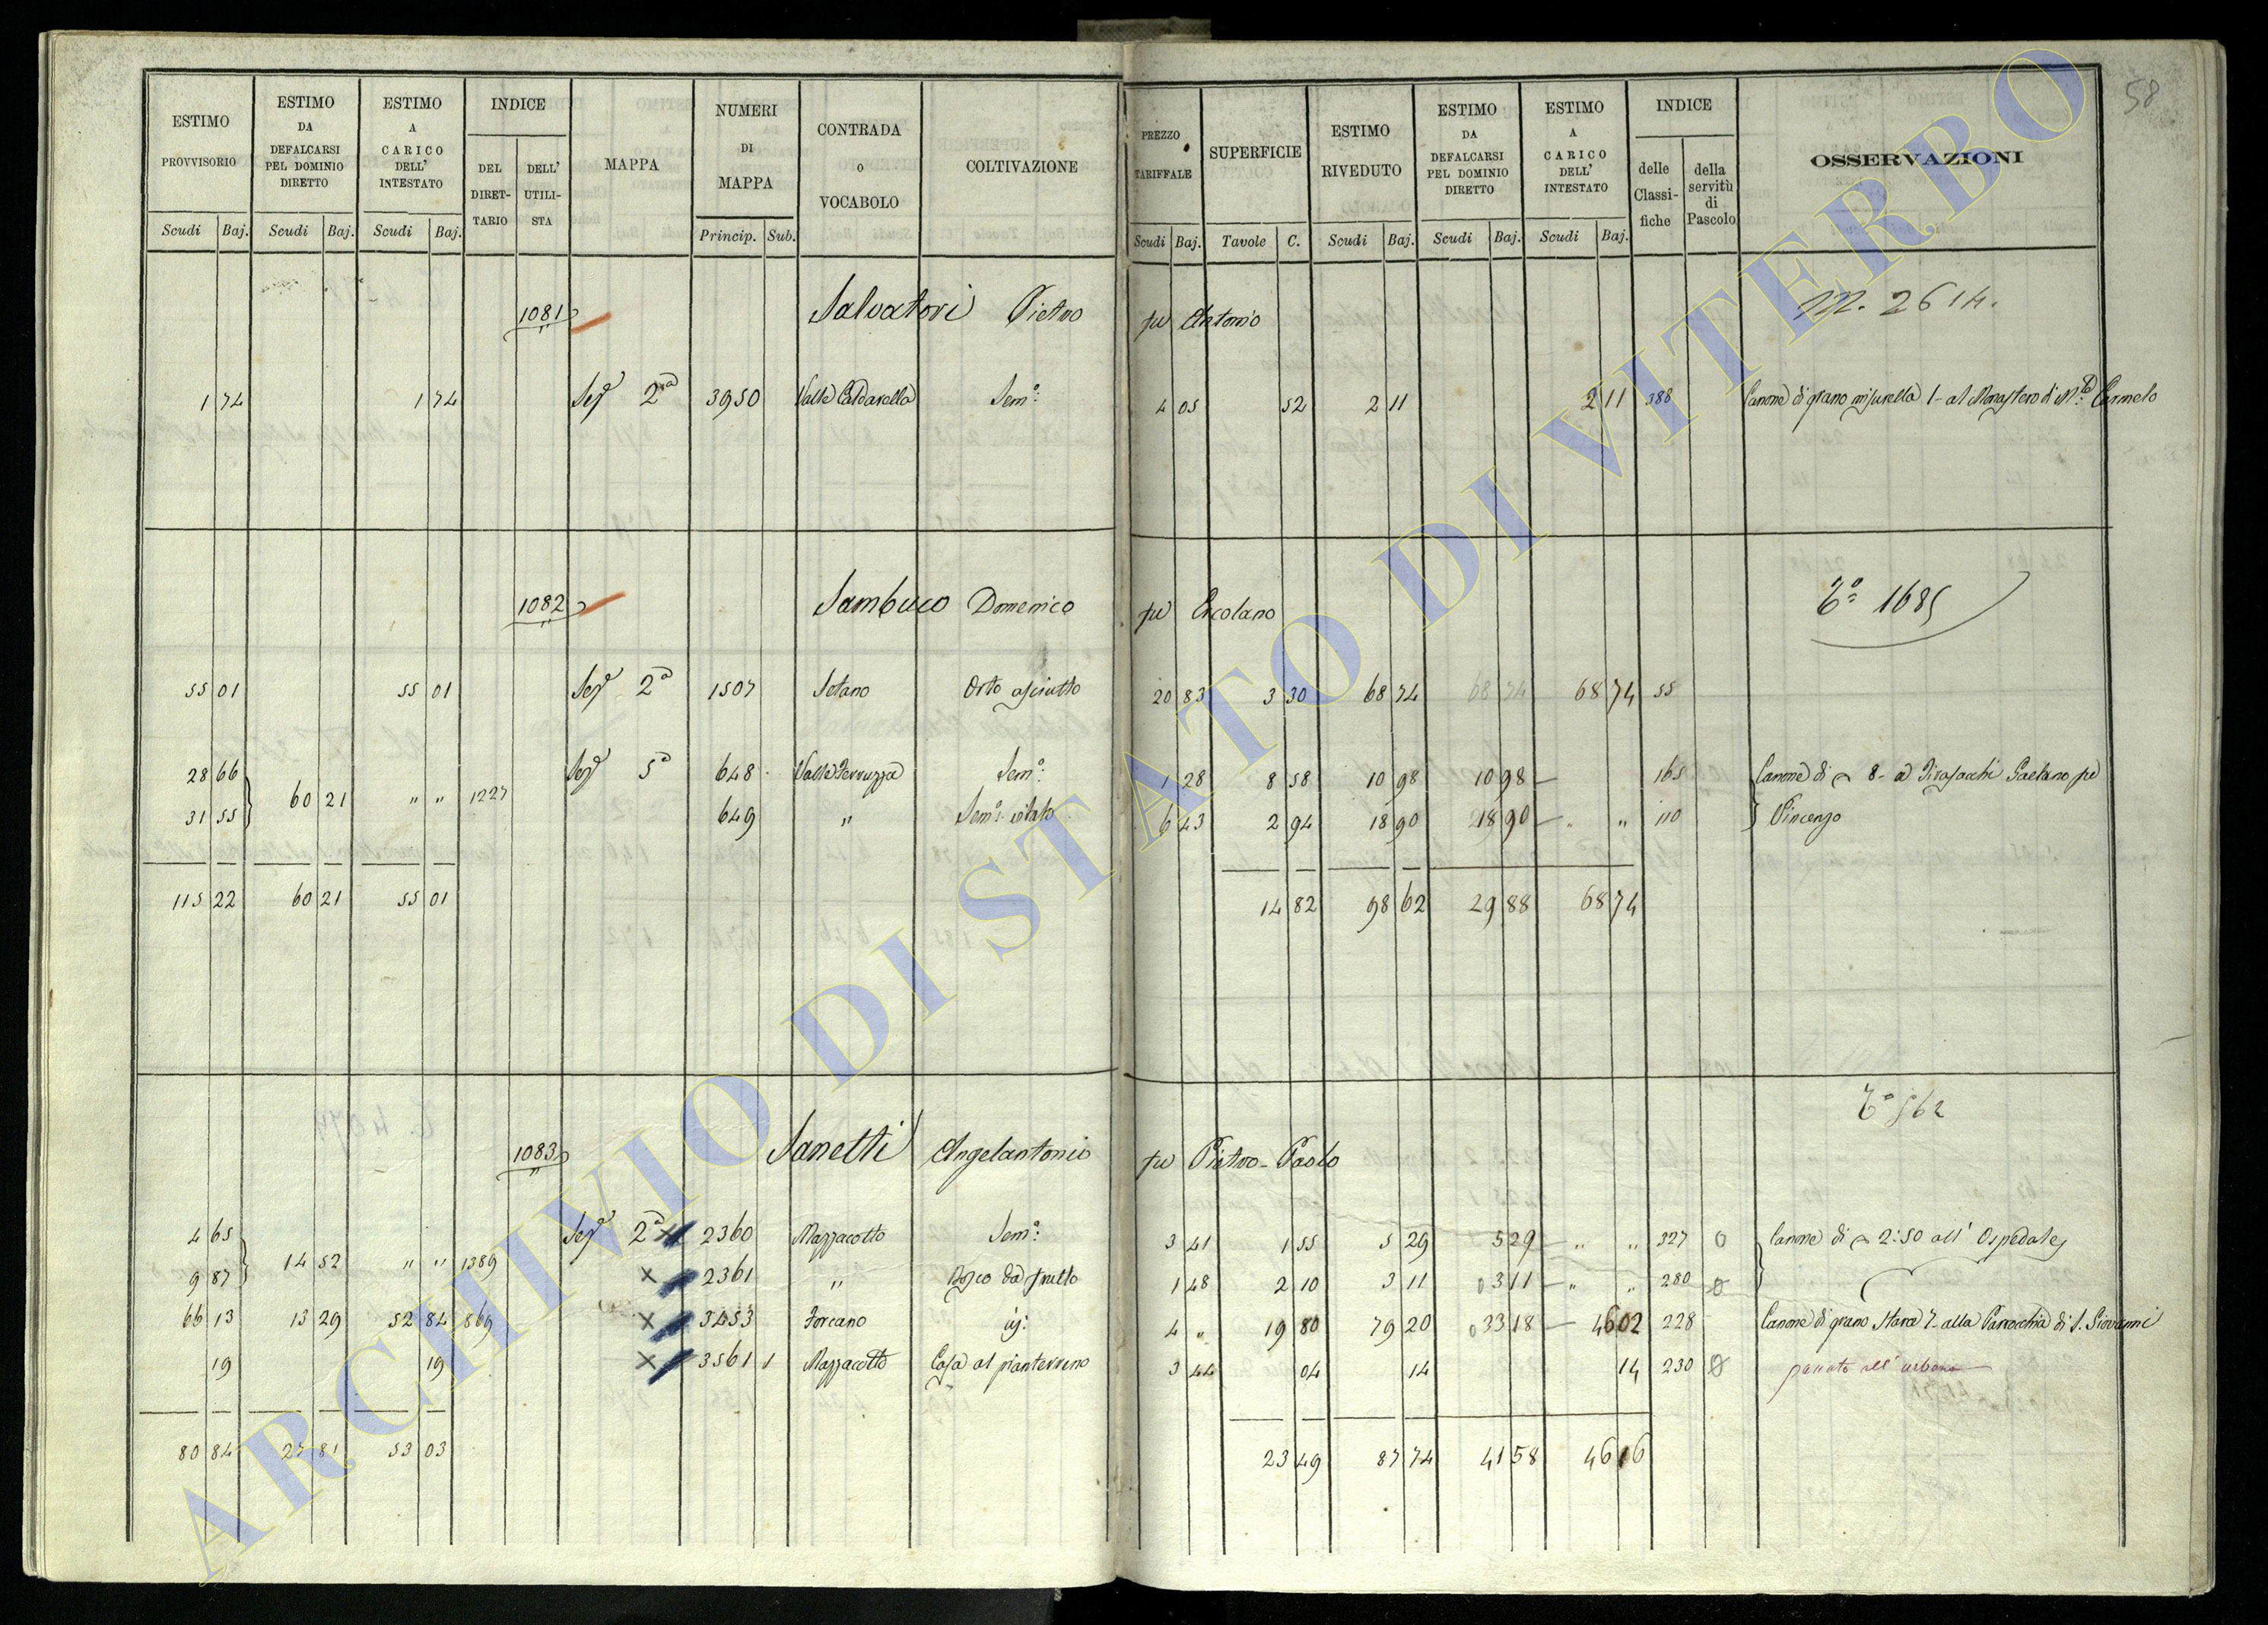 58
ESTIMO PROVVISORIO
ESTIMO DA DEFALCARSI PEL DOMINIO DIRETTO
ESTIMO A CARICO DELL' INTESTATO
INDICE
DEL DIRETTARIO
DELL' UTILISTA
MAPPA
NUMERI DI MAPPA
CONTRADA o VOCABOLO
COLTIVAZIONE
PREZZO TARIFFALE
SUPERFICIE
ESTIMO RIVEDUTO
ESTIMO DA DEFALCARSI PEL DOMINIO DIRETTO
ESTIMO A CARICO DELL' INTESTATO
INDICE
delle Classifiche
della servitù di Pascolo
OSSERVAZIONI
Scudi Baj. Scudi Baj. Scudi Baj. Princip. Sub. Scudi Baj. Tavole C. Scudi Baj. Scudi Baj. Scudi Baj.
1081 Salvatori Pietro fu Antonio 2614.
1 74 1 74 Sez 2a 3950 Valle Caldarella Sem: 4 05 52 2 11 2 11 388 Canone di grano misurella 1- al Monastero di Carmelo
1082 Sambuco Domenico fu Ercolano To 1685
55 01 55 01 Sez 2a 1507 Setano Orto asciutto 20 83 3 30 68 74 68 74 68 74 55
28 66 Sez 5a 648 Valle Ferruzza Sem: 1 28 8 58 10 98 10 98 165 Canone di 8- a Gaetano fu
60 21 " " 1227
31 55 649 " Sem: vitato 6 43 2 94 18 90 18 90 " " 110 Vincenzo
115 22 60 21 55 01 14 82 98 62 29 88 68 74
To 562
1083 Sanetti Angelantonio fu Pietro-Paolo
4 65 Sez 2a x 2360 Mazzacotto Sem: 3 41 1 55 5 29 5 29 " " 327 0 Canone di 2:50 all' Ospedale
14 52 " " 1389
9 87 x 2361 " Bosco da frutto 1 48 2 10 3 11 0 3 11 " " 280 0
66 13 13 29 52 84 869 x 3453 Forcano 4 " 19 80 79 20 0 33 18 46 02 228 Canone di grano Stara 7- alla Parrocchia di S. Giovanni
19 19 x 3561 1 Mazzacotto Casa al pianterreno 3 44 04 14 14 230 0 passato all' urbano
80 84 27 81 53 03 23 49 87 74 41 58 46 16
ARCHIVIO DI STATO DI VITERBO